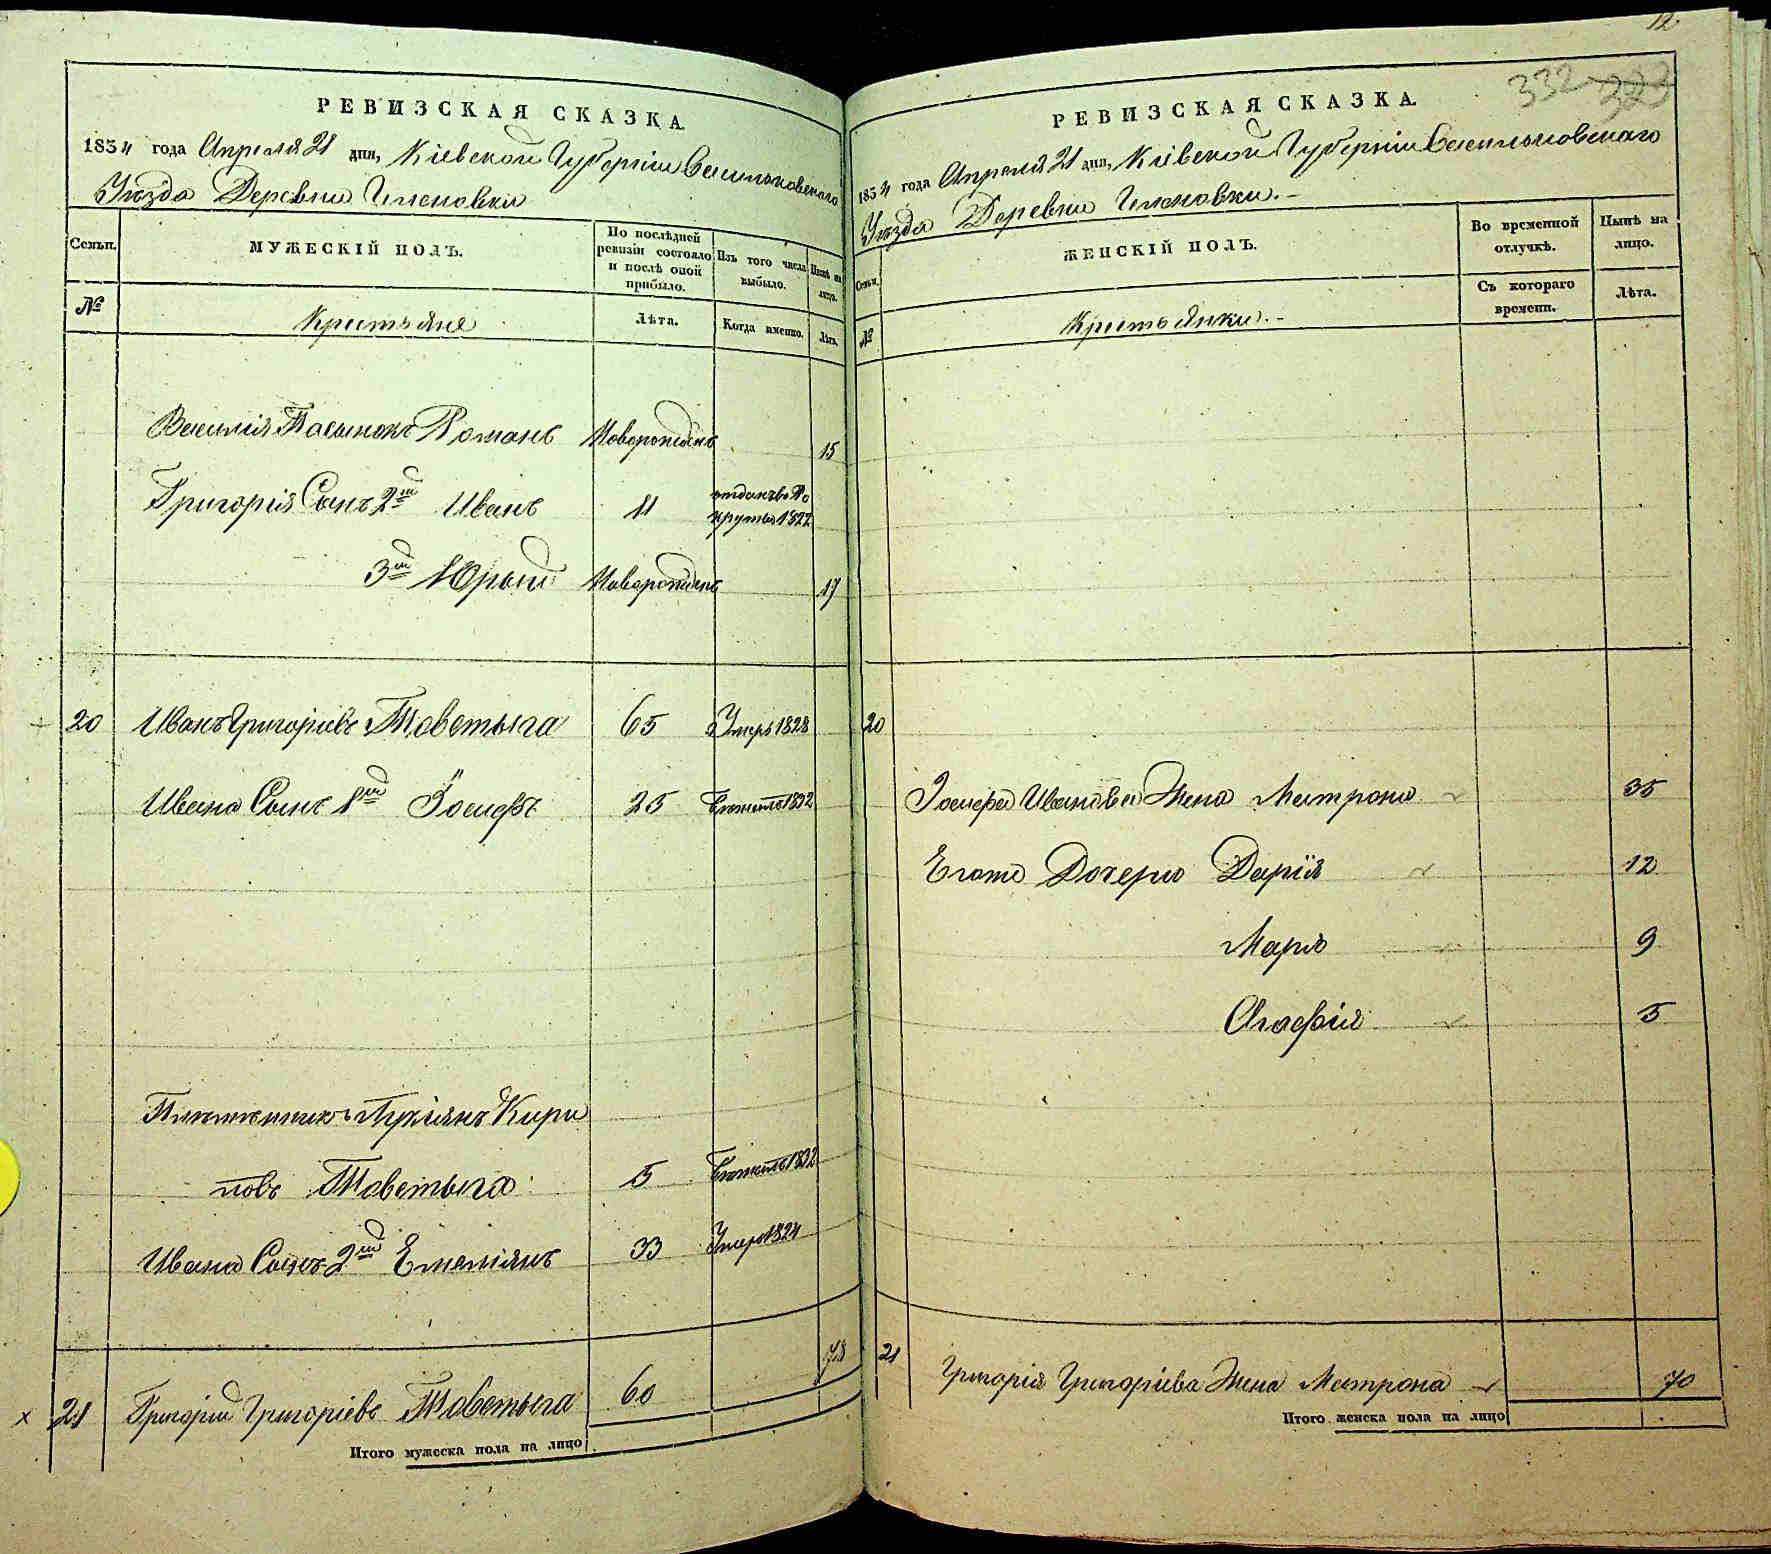 12.
332 323
РЕВИЗСКАЯ СКАЗКА.
1834 года Апреля 21 дня, Кіевской Губерніи Васильковскаго
Уезда Деревни
Семьи.
МУЖЕСКІЙ ПОЛЪ.
По послѣдней ревизіи состояло и послѣ оной прибыло.
Изъ того числа выбыло.
Нынѣ на лицо.
№
Крестьяне
Лѣта.
Когда именно.
Лѣта.
Василія Пасынокъ Романъ Новорожденъ 15
Григорія Сынъ 2й Иванъ 11 отданъ въ Рекруты 1822
3й Юрый Новорожденъ 17
20 Иванъ Григоріевъ 65 Умеръ 1828
Ивана Сынъ 1й Іосифъ 25 1832
Племянникъ Лукіянъ Кири
ловъ 5 1832
Ивана Сынъ 2й Емеліянъ 33 Умеръ 1824
21 Григорій Григоріевъ 60 78
Итого мужеска пола на лицо
РЕВИЗСКАЯ СКАЗКА.
1834 года Апреля 21 дня, Кіевской Губерніи Васильковскаго
Уезда Деревни
Семьи.
ЖЕНСКІЙ ПОЛЪ.
Во временной отлучкѣ.
Нынѣ на лицо.
№
Крестьянки.
Съ котораго времени.
Лѣта.
20
Іосифа Иванова Жена Матрона 35
Егоже Дочери Дарія 12
Марія 9
Агафія 5
21 Григорія Григоріева Жена Матрона 70
Итого женска пола на лицо